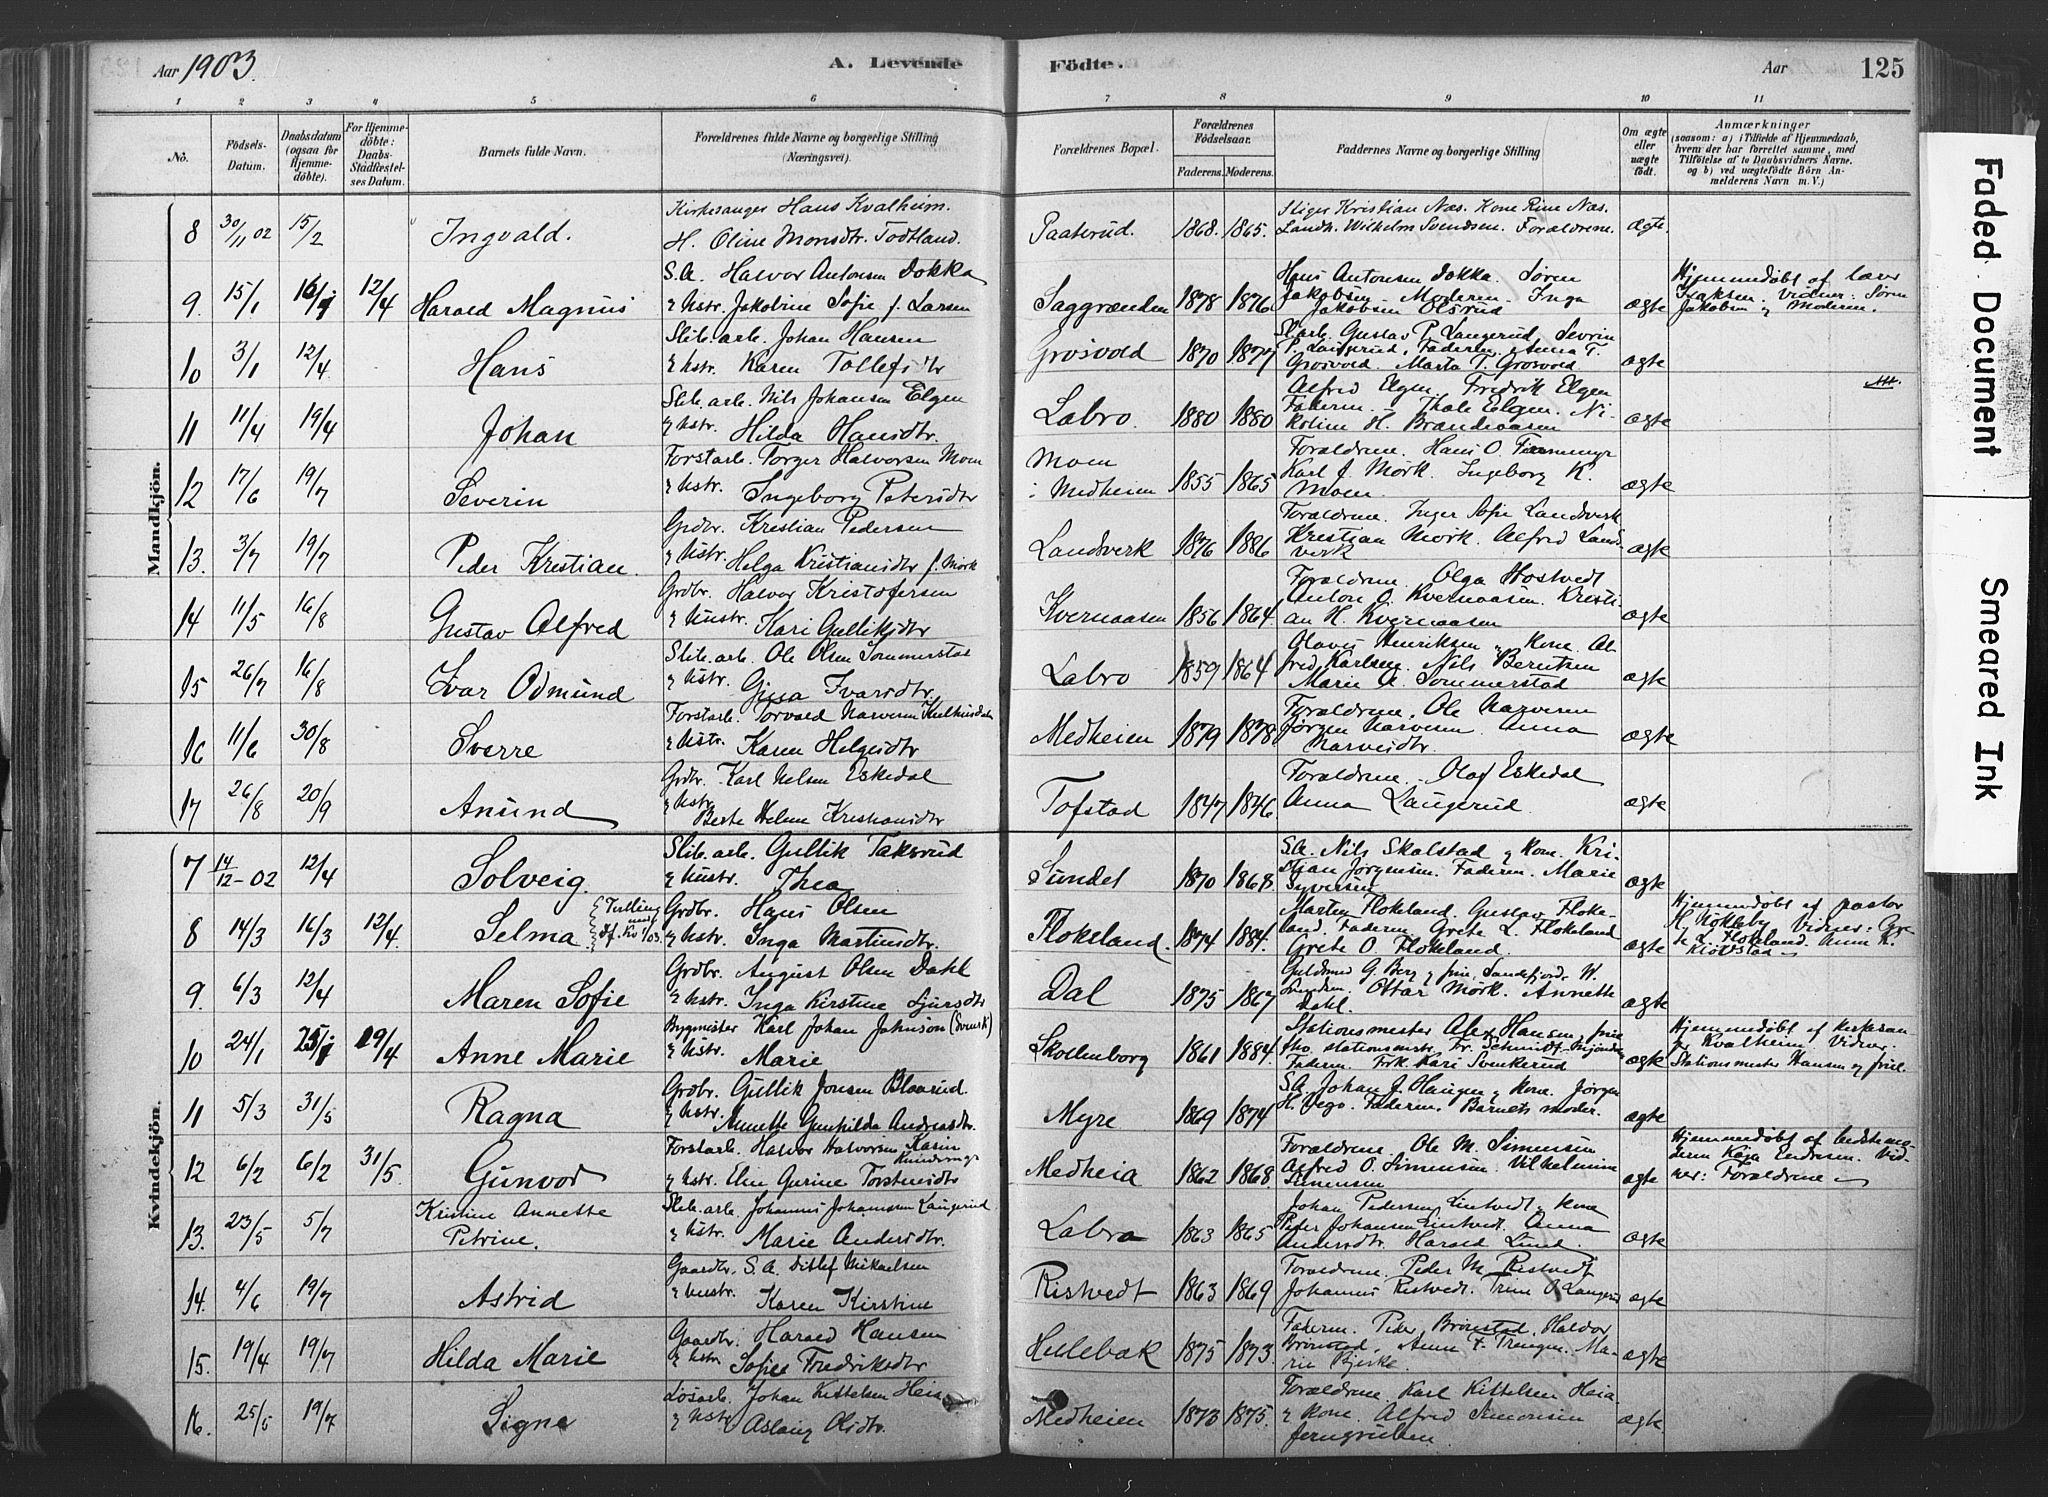 Aar 1903. A. Levende Födte. Aar 125
1 2 3 4 5 6 7 8 9 10 11
No. Födsels-Datum. Daabsdatum (ogsaa for Hjemme-döbte). For Hjemme-döbte: Daabs-Stadfæstel-ses Datum. Barnets fulde Navn. Forældrenes fulde Navne og borgerlige Stilling (Næringsvei). Forældrenes Bopæl. Forældrenes Födselsaar. Faderens. Moderens. Faddernes Navne og borgerlige Stilling Om ægte eller uægte födt. Anmærkninger (saasom: a) i Tilfælde af Hjemmedaab, hvem der har forrettet samme, med Tilföielse af to Daabsvidners Navne. og b) ved uægtefödte Börn An-melderens Navn m. V.)
Mandkjön.
8 30/11 02 15/2 Ingvald. Kirkesanger Hans Kvalheim. H. Oline Monsdtr. Todtland. Paaterud. 1868. 1865. Kristian Næs. Kone Rine Næs. Landh. Wilhelm Svendsen. Forældrene. ægte.
9. 15/1 16/1 12/4 Harald Magnus S.A. Halvor Antonsen Dokka & hstr. Jakobine Sofie f. Larsen Saggrænden 1878 1876 Hans Antonsen Dokka. Søren Jakobsen. Moderen. Inga Jakobsen Olsrud ægte Hjemmedøbt af lærer Isaksen. Vidner: Søren Jakobsen og Moderen.
10 3/1 12/4 Hans Slib.arb. Johan Hansen & hstr. Karen Tollefsdtr Grosvold 1870 1877 Gustav P. Laugerud, Severin P. Laugerud, Faderen, Anna T. Grosvold. Marta T. Grosvold ægte
11 11/4 19/4 Johan Slib.arb. Nils Johansen Elgen & hstr. Hilda Hansdtr. Labro. 1880 1880 Alfred Elgen. Fredrik Elgen Faderen. Thale Elgen. Ni-koline H. Brandvaasen ægte
12 17/6 19/7 Severin Forstarb. Torger Halvorsen Moen & hstr. Ingeborg Petersdtr Moen i Medheien 1855 1865 Forældrene. Hans O. Karl J. Mørk. Ingeborg K. Moen. ægte
13. 3/7 19/7 Peder Kristian. Grdbr. Kristian Pedersen & hstr. Helga Kristiansdtr f. Mørk Landverk 1876 1886 Forældrene. Inger Sofie Landverk Kristian Mørk. Alfred Land-verk ægte
14 11/5 16/8 Gustav Alfred Grdbr. Halvor Kristofersen & hustr. Kari Gulliksdtr Kvernaasen 1856 1864 Forældrene. Olga Hostvedt Anton O. Kvernaasen. Kristi-an H. Kvernaasen ægte
15 26/7 16/8 Ivar Odmund Slib.arb. Ole Olsen Sommerstad & hstr. Gina Ivarsdtr. Labro 1859 1864 Olavus Henriksen & kone. Al-fred Karlsen. Nils Berntsen Marie A. Sommerstad ægte
16 11/6 30/8 Sverre Forstarb. Torvald Narvesen & hstr. Karen Helgesdtr Medheien 1879 1878 Forældrene. Ole Narvesen Jørgen Narvesen. Anna Narvesdtr. ægte
17 26/8 20/9 Amund Grdbr. Karl Nilsen Eskedal & hstr. Berte Helene Kristiansdtr Tofstad 1847 1846 Forældrene. Olaf Eskedal Anna Laugerud ægte
Kvindekjön.
7 14/12-02 12/4 Solveig. Slib.arb. Gullik Taksrud & hustr. Thea Sundet 1870 1868. S.A. Nils Skalstad & kone. Kri-stian Jørgensen. Faderen. Marie Syversen ægte
8 14/3 16/3 12/4 Selma. Tvilling Grdbr. Hans Olsen & hstr. Inga Martinsdtr. Flokeland. 1874 1884. Marten Flokeland. Gustav Floke-land. Faderen. Grete L. Flokeland Grete O. Flokeland. ægte Hjemmedøbt af pastor H. Nökleby Vidner: Gre-te L. Flokeland. Anne K. Klovstad
9. 6/3 12/4 Maren Sofie Grdbr. August Olsen Dahl & hstr. Inga Kirstine Sjursdtr Dal 1875 1867 Guldsmed G. Berg & frue, Sandefjord. W. Svendsen. Ottar Mørk. Annette Dahl. ægte
10 24/1 25/1 19/4 Anne Marie Bygmester Karl Johan Johnson (Svensk) & hstr. Marie Skollenborg 1861 1884. Stationsmester Alex Hansen, frue Ths. stationsmester Fr. Schmidt-Mjøndalen Faderen. Frk. Kari Svenkerud ægte Hjemmedøbt af kirkesan-ger Kvalheim. Vidner. Stationsmester Hansen og frue.
11 5/3 31/5 Ragna Grdbr. Gullik Jonsen Blaarud. & hstr. Annette Gunhilda Andreasdtr. Myre 1869 1874 S.A. Johan J. Haugen & kone. Jørgen H. Vego. Faderen. Barnets moder. ægte
12 6/2 6/2 31/5. Gunvor Forstarb. Halvor Halvorsen & hstr. Elen Gurine Torstensdtr Medheia 1862 1868. Forældrene. Ole M. Simensen Alfred O. Simensen. Vilhelmine Simensen ægte Hjemmedøbt af bedstemo-deren Kaja Endresen. Vid-ner: Forældrene
13. 23/5 5/7 Kristine Annette Petrine. Slib.arb. Johannes Johannesen Laugerud & hstr. Marie Andersdtr. Labro 1863 1865 Johan Pedersen Lintvedt & kone Peder Johansen Lintvedt. Anna Andersdtr. Harald Lund. ægte
14. 4/6 19/7 Astrid Gaardbr. S.A. Ditlef Mikaelsen & hustr. Karen Kirstine Ristvedt 1863 1869 Forældrene. Peder M. Ristvedt Johannes Ristvedt. Trine O. Laugerud ægte
15. 19/4 19/7 Hilda Marie Gaardbr. Harald Hansen & hstr. Sofie Fredriksdtr Hellebæk 1875 1873. Faderen. Peder Brønstad. Haldor Brønstad, Anne F. Trengen. Ma-rie Bjerke. ægte
16. 25/5 19/7 Signe Løsarb. Johan Kittelsen Heia & hstr. Aslaug Olsdtr. Medheien 1873 1875. Forældrene. Karl Kittelsen Heia & kone. Alfred Simonsen Jerngruben ægte
Faded Document Smeared Ink